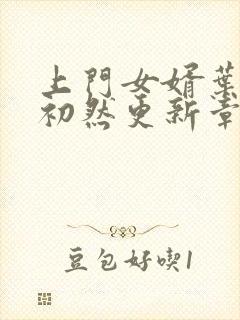 上門女婿葉
初然更新章
豆包好喫1